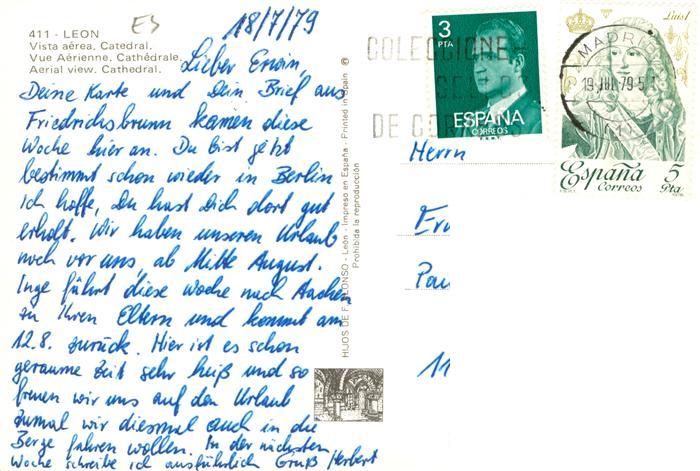 411 - LEON
Vista aérea. Catedral.
Vue Aérienne. Cathédrale.
Aerial view. Cathedral.
ES
18/7/79
Lieber Erwin,
Deine Karte und Dein Brief aus
Friedrichsbrunn kamen diese
Woche hier an. Du bist jetzt
bestimmt schon wieder in Berlin
ich hoffe, Du hast Dich dort gut
erholt. Wir haben unseren Urlaub
noch vor uns, ab Mitte August.
Inge fährt diese Woche nach Aachen
zu Ihren Eltern und kommt am
12.8. zurück. Hier ist es schon
geraume Zeit sehr heiß und so
freuen wir uns auf den Urlaub
zumal wir diesmal auch in die
Berge fahren wollen. In der nächsten
Woche schreibe ich ausführlich Gruß Herbert
HIJOS DE F. ALONSO - León - Impreso en España - Printed in Spain ©
Prohibida la reproducción
COLECCIONE
DE
3
PTA
ESPAÑA
CORREOS
F.N.M.T.
Luis I
MADRID
19 JUL 79
España
Correos
5
Pta
Herrn
Er
Pau
11